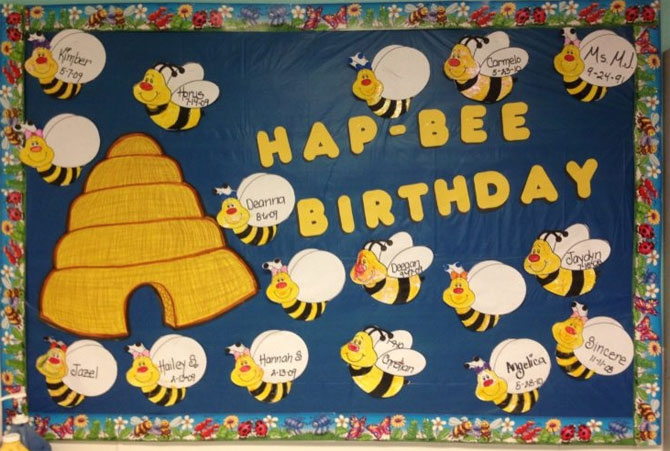 Kimber
5-7-09
Horus
7-14-09
Carmelo
5-23-10
Ms M.J.
9-24-91
HAP-BEE
BIRTHDAY
Deanna
8-6-09
Deegan
Jaydyn
Jazel
Hailey S
2-13-09
Hannah S
2-13-09
Christian
Angelica
5-28-10
Sincere
11-11-08